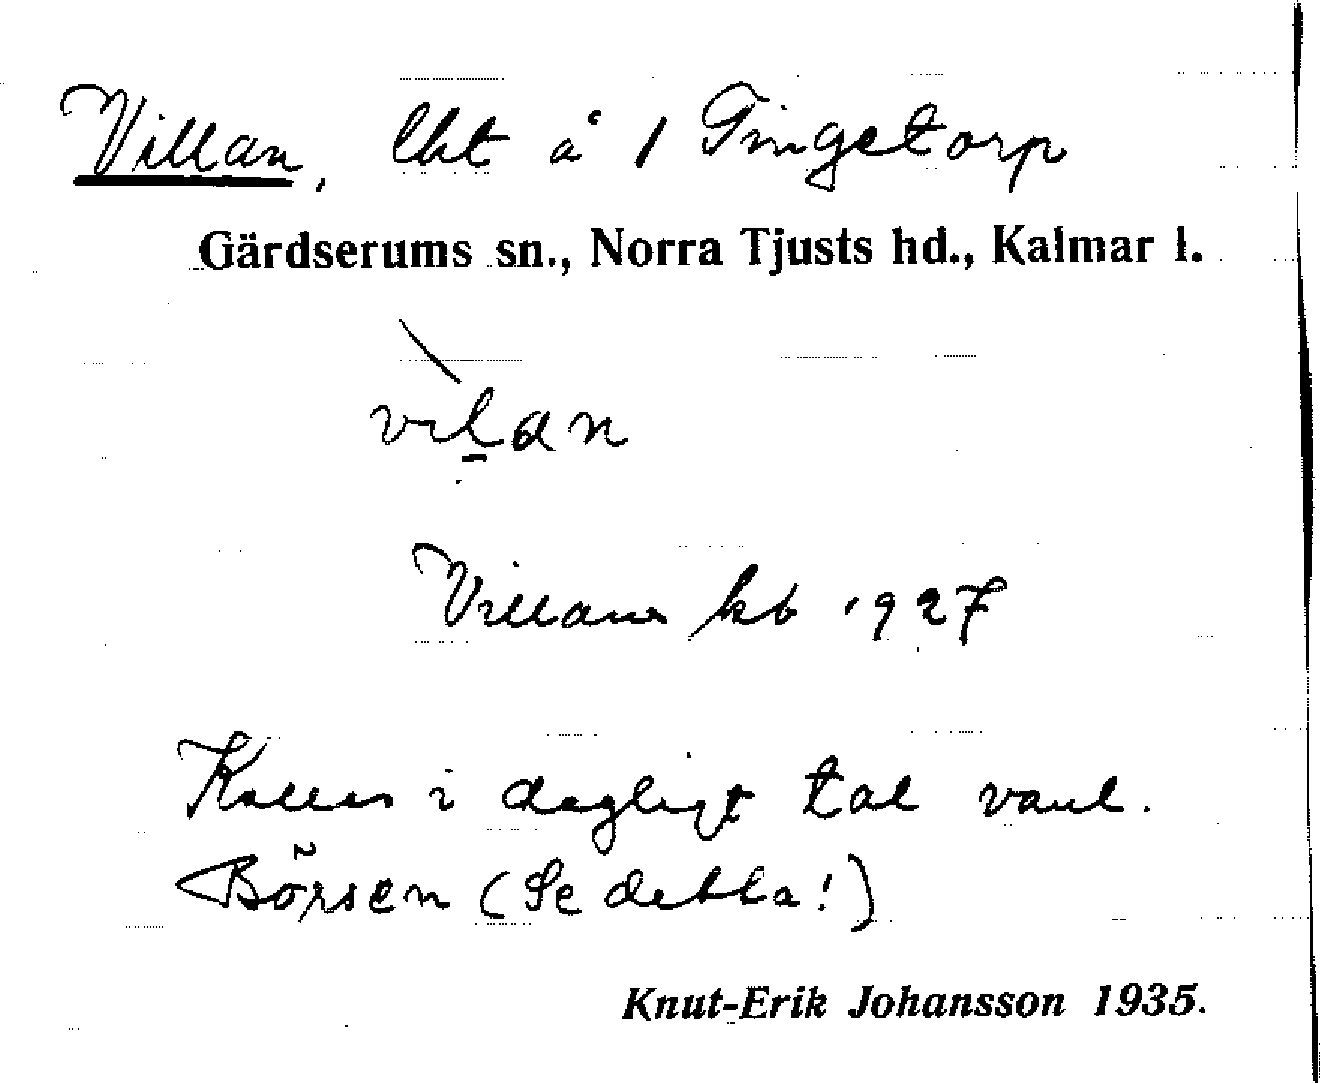 Villan, lht å 1 Tingetorp
Gärdserums sn., Norra Tjusts hd., Kalmar l.
vìlan
Villan kb 1927
Kallas i dagligt tal vanl.
Börsen (Se detta!)
Knut-Erik Johansson 1935.